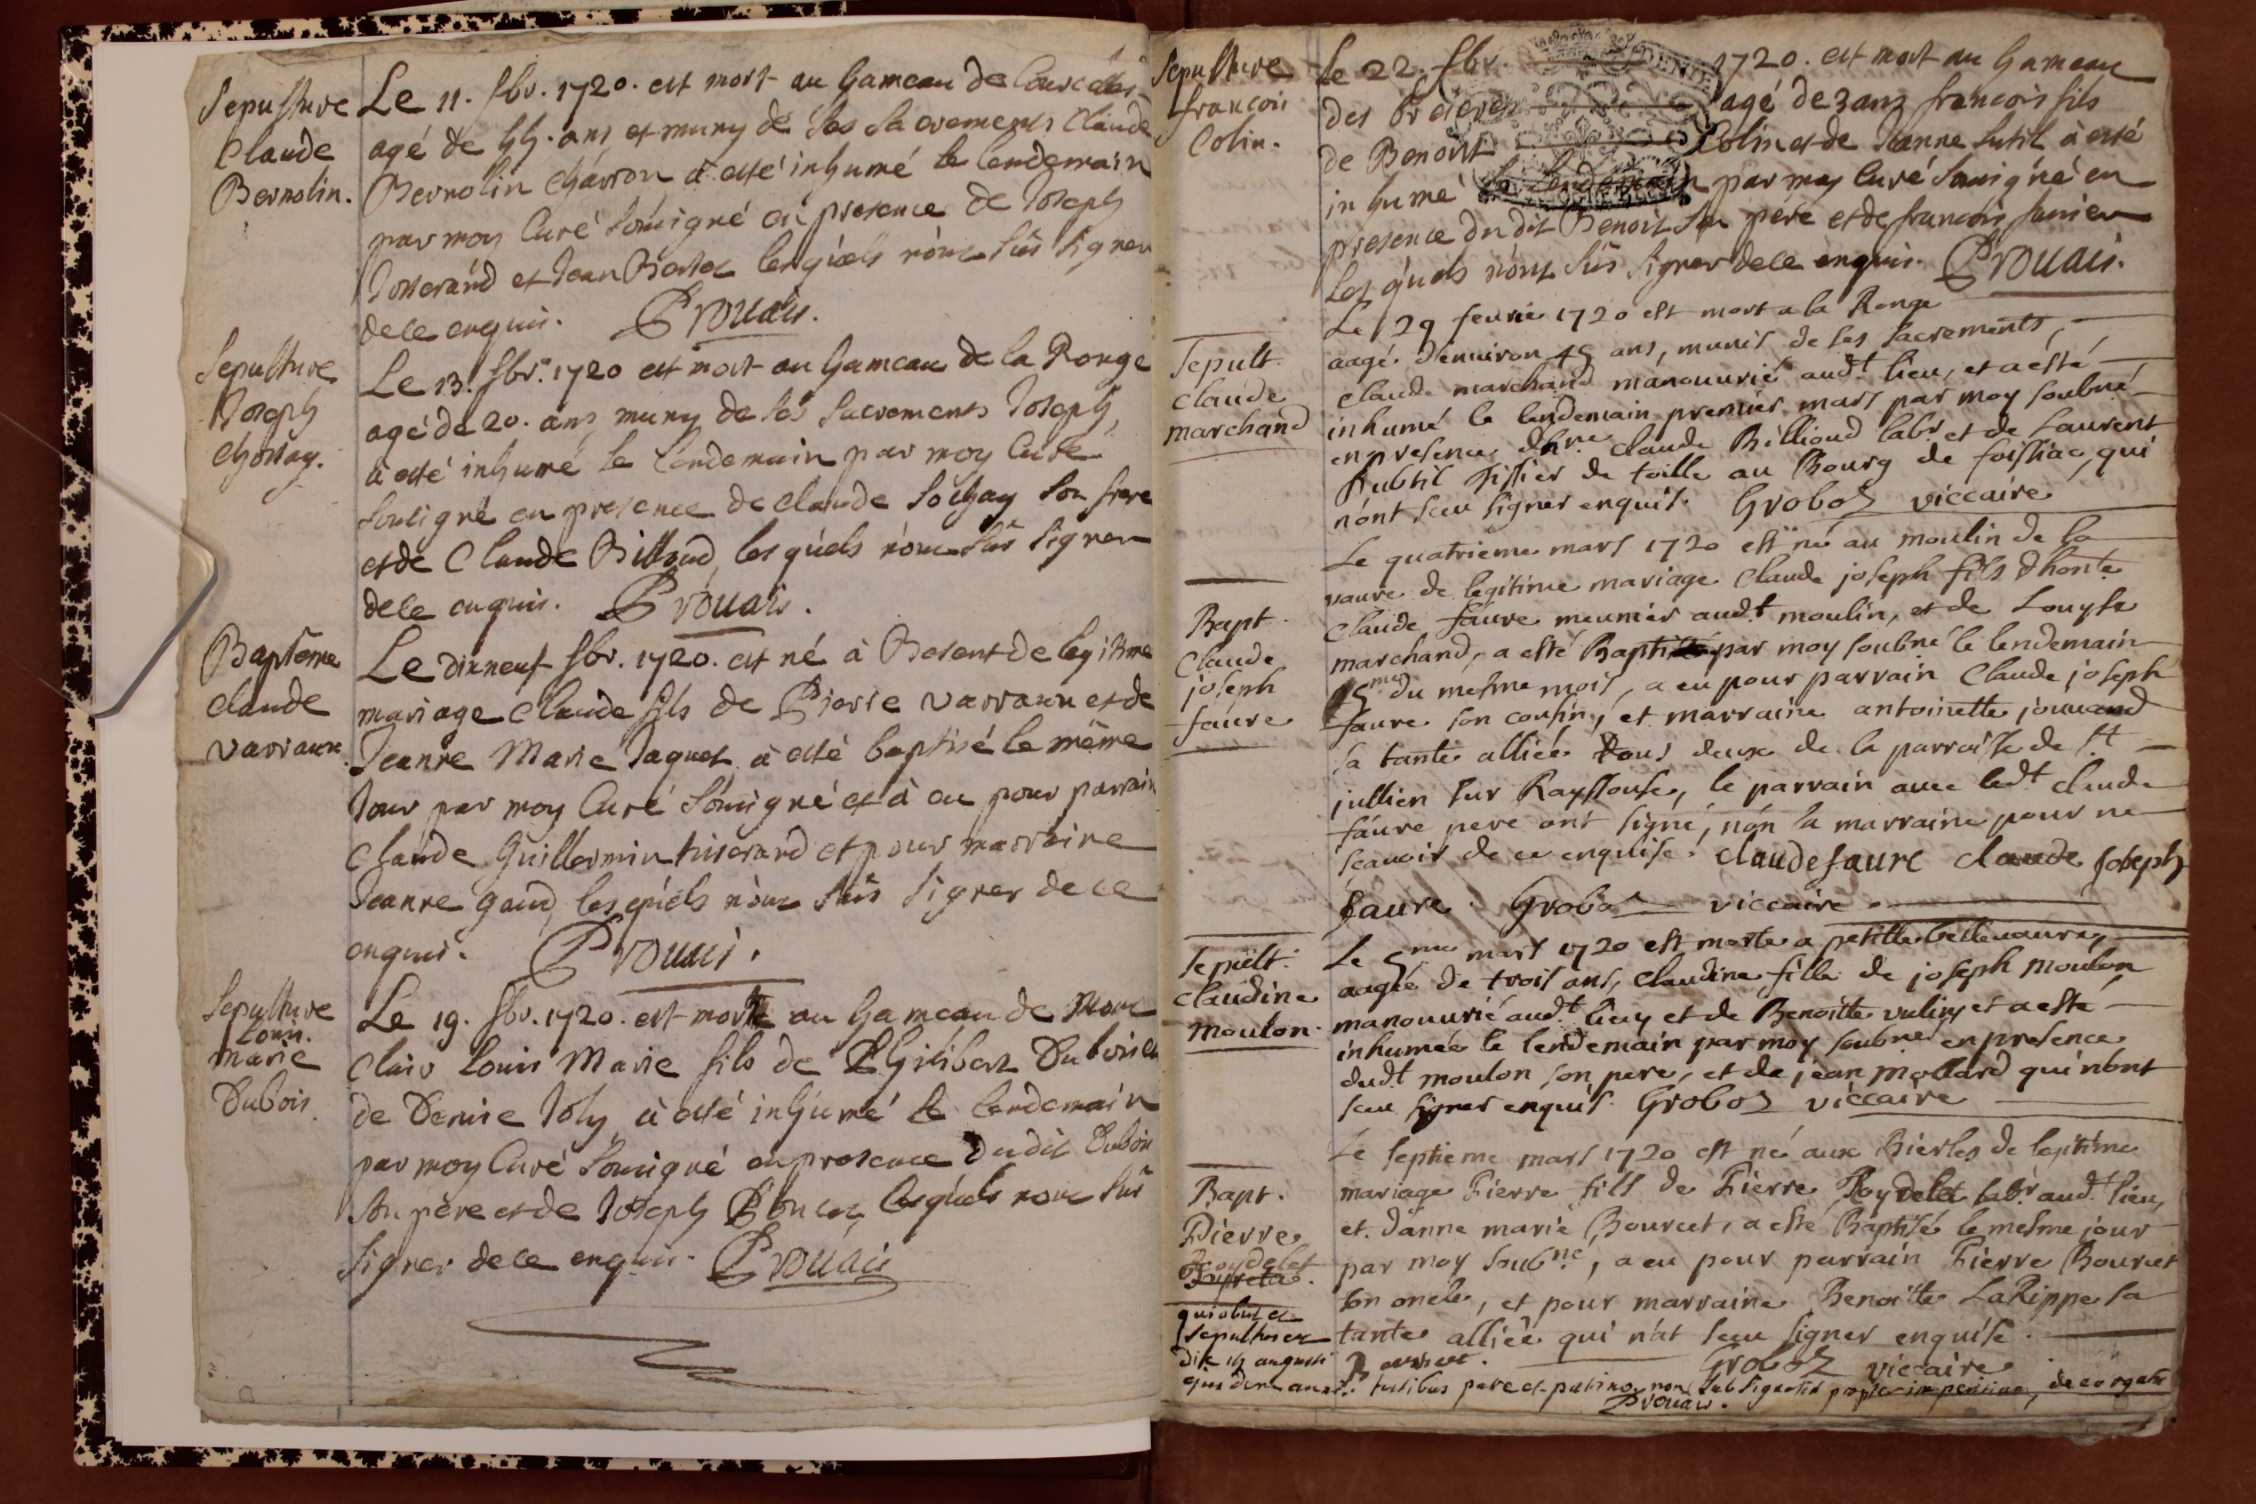 Sepulture
Claude
Bernolin.
Le 11. fbr. 1720. est mort au hameau de
agé de ans et muny de ses Sacrements Claude
Bernolin charron à esté inhumé le lendemain
par moy Curé soûsigné en presence de Joseph
Josserand et Jean lesquels n'ont sûs signer
de ce enquis. Prouais.
Sepulture
Joseph
Le 13. fbr. 1720 est mort au hameau de la Ronge
agé de 20. ans muny de ses sacrements Joseph
à esté inhumé le lendemain par moy Curé
sousigné en presence de claude Sochay son frere
et de Claude Billoud, lesquels n'ont sûs signer
de ce enquis. Prouais.
Baptême
claude
varraux
Le dixneuf fbr. 1720. est né à de legitime
mariage Claude fils de Pierre varraux et de
Jeanne Marie Jaquet à esté baptisé le même
Jour par moy Curé soûsigné et à eu pour parrain
Claude Guillermin tisserand et pour marraine
Jeanne Gaud, lesquels n'ont sûs signer de ce
enquis. Prouais.
Sepulture
Louis
marie
Dubois.
Le 19. fbr. 1720. est mort au hameau de Mont
Clair Louis Marie fils de Philibert Dubois et
de Denise Joly à esté inhumé le lendemain
par moy Curé soûsigné en presence dudit Dubois
son père et de Joseph lesquels n'ont sûs
signer de ce enquis. Prouais
Sepulture
francois
Colin.
Le 22. fbr. 1720. est mort au hameau
des agé de 3 ans francois fils
de Benoist Colin et de Jeanne Sutil à esté
inhumé le lendemain par moy Curé sousigné en
presence du dit Benoit son père et de francois
lesquels n'ont sûs signer de ce enquis. Prouais.
Sepult.
claude
marchand
Le 29 feurie 1720 est mort a la Ronge
aagé d'enuiron 45 ans, munis de ses sacrements,
claude marchand manouurié audt. lieu, et a esté
inhumé le lendemain premier mars par moy soubné
en presence dhne. claude Billioud labr. et de Laurent
Rubtil tissier de toille au Bourg de foissiac, qui
n'ont sceu signer enquis. Groboz viccaire
Bapt.
Claude
joseph
faure
Le quatrieme mars 1720 est né au moulin de la
vaure de legitime mariage Claude joseph fils dhonte
Claude faure meunier audt moulin, et de Louyse
marchand, a esté Baptisé par moy soubné le lendemain
5me du mesme mois, a eu pour parrain Claude joseph
faure son cousin, et marraine antoinette jouuand
sa tante alliée tous deux de la parroisse de St
jullien sur Rayssouse, le parrain auec ledt claude
faure pere ont signé, nón la marraine pour ne
scauoir de ce enquise. claude faure claude Joseph
faure. Groboz viccaire
Sepult.
claudine
moulon.
Le 5me mars 1720 est morte a petitte bellevaure,
aagée de trois ans, Claudine fille de joseph Moulon
manouurié audt. lieu et de Benoitte vuliny et a esté
inhumée le lendemain par moy soubné en presence
dudt moulon son pere, et de jean mollard qui n'ont
sceu signer enquis. Groboz viccaire
Bapt.
Pierre
Poydelet
Le septieme mars 1720 est né aux Bierles de legitime
mariage Pierre fils de Pierre Poydelet labr audt. lieu,
et danne marie Bourcet, a esté Baptisé le mesme jour
par moy soubné, a eu pour parrain Pierre Bourcet
son oncle, et pour marraine Benoitte LaRippe sa
tante alliée qui n'at sceu signer enquise.
Groboz viccaire
qui obiit et
sepultus est
die augusti
ejusdem anni. testibus patre et patrino non subsignatis propter imperitiam, de eo rogatis
Prouais.